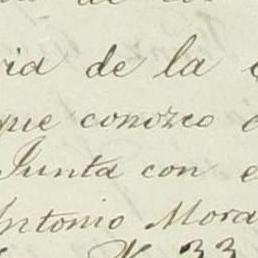 ria de la
que conozco
Junta con e
Antonio Mora
33